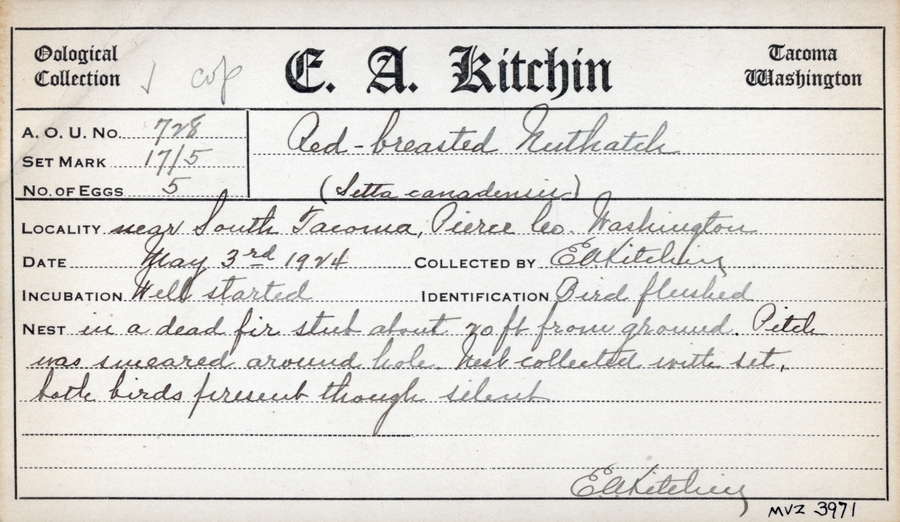 Oological Collection
1 cop
E. A. Kitchin
Tacoma Washington
A. O. U. No. 728
Set Mark 17/5
No. of Eggs 5
Red-breasted Nuthatch
(Sitta canadensis)
Locality near South Tacoma, Pierce Co. Washington
Date May 3rd 1924 Collected by EAKitchin
Incubation Well started Identification Bird flushed
Nest in a dead fir stub about 20 ft from ground. Pitch
was smeared around hole. Nest collected with set,
both birds present though silent
EAKitchin
MVZ 3971